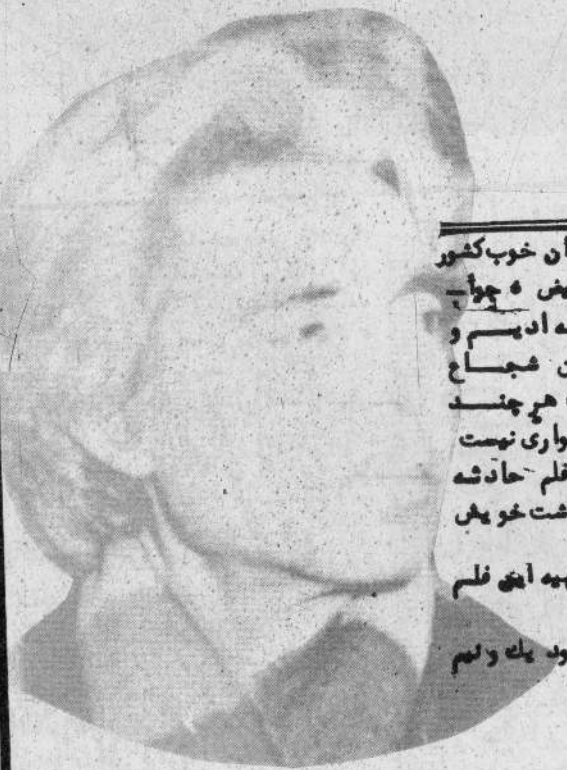 آن خوب کشور
یش ، جواب
ه ادیم و
ن شجاع
هرچند
واری نیست
فلم حادثه
شت خویش
هیه این فلم
ود یک و نیم